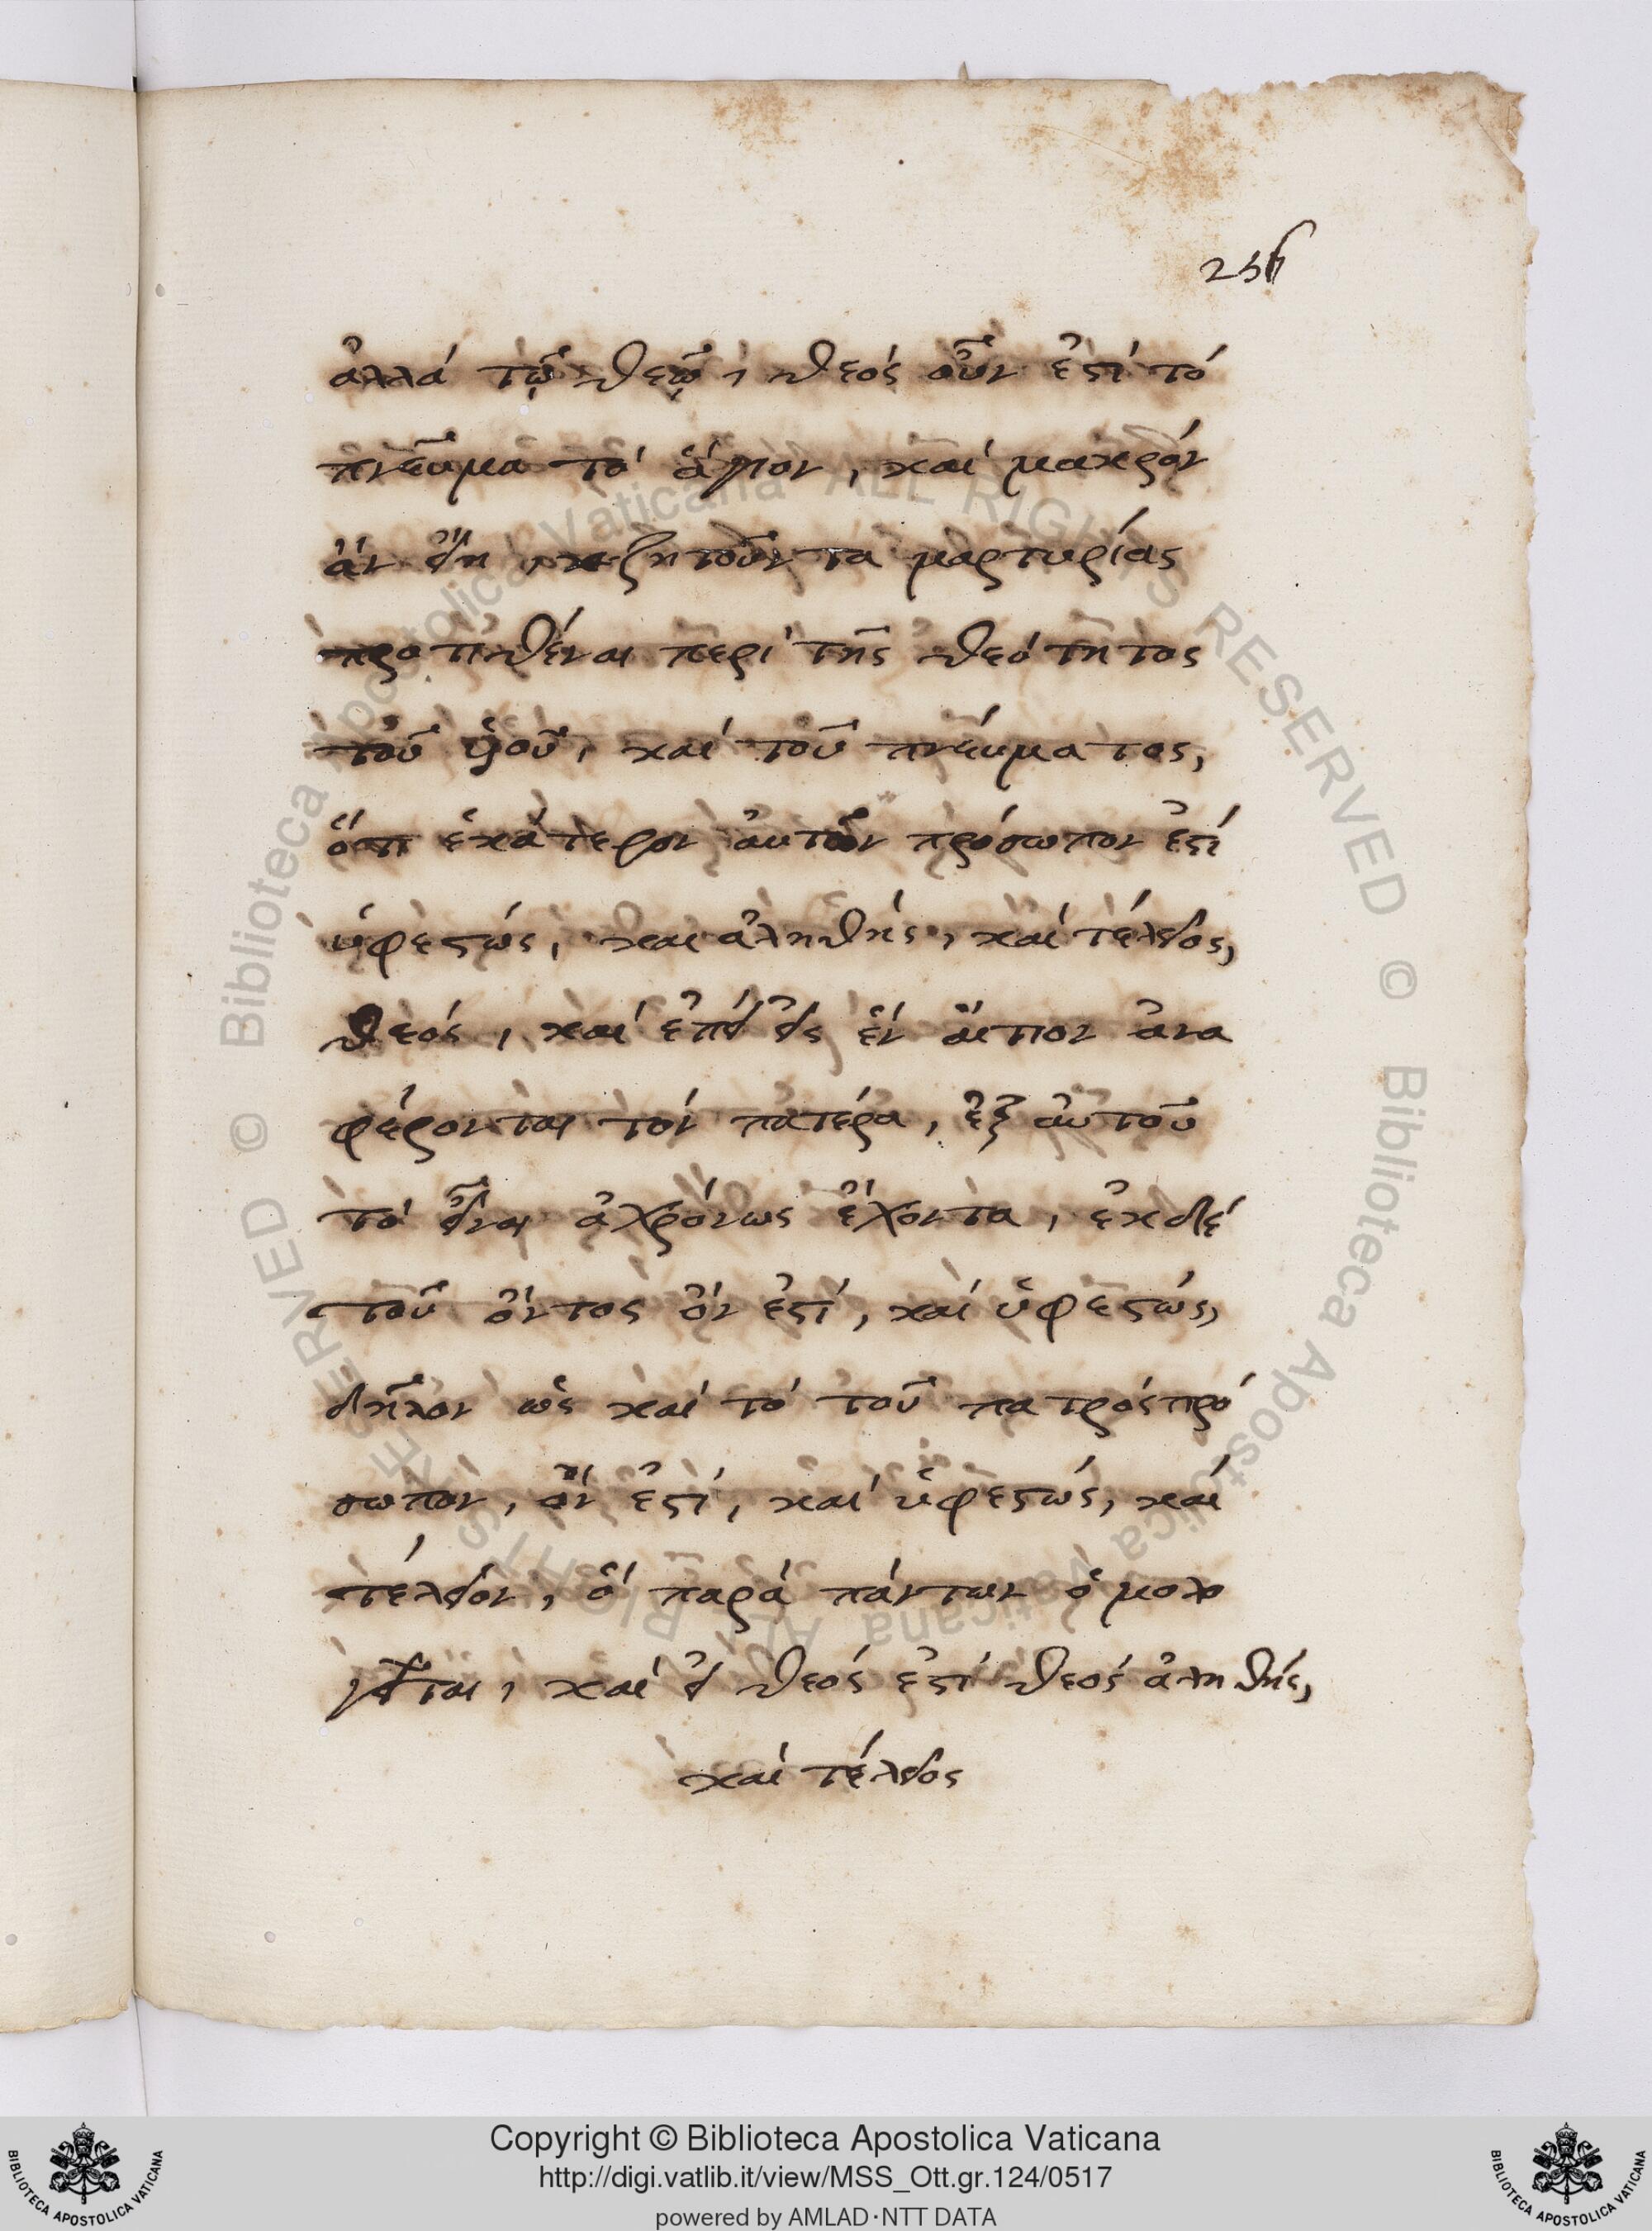 256
ἀλλά τῷ θεῷ, θεός οὖν ἐστί τό
πνεῦμα τό ἅγιον, καί μακρόν
ἄν εἴη, ζητοῦντα μαρτυρίας
προτιθέναι περί τῆς θεότητος
τοῦ ὑιοῦ, καί τοῦ πνέυματος,
ὅτι ἑκάτερον ἀυτῶν πρόσωπον ἐστί
ὑφεστώς, και ἀληθής, καί τέλειος,
θεός, καί ἐπεί εἰς ἕν ἄιτιον ἀνα
φέρονται τόν πατέρα, ἐξ ἀυτοῦ
τό εἶναι ἀχρόνως ἔχοντα, ἐκ δέ
τοῦ ὄντος ὄν ἐστί, καί ὑφεστώς,
δῆλον ὡς καί τό τοῦ πατρός πρό
σωπον, ὄν ἐστί, καί ὑφεστώς, καί
τέλειον, ὅ παρά πάντων ὁμολο
γεῖται, καί εἰ θεός ἐστί θεός ἀληθής,
καί τέλειος
© Biblioteca Apostolica Vaticana ALL RIGHTS RESERVED © Biblioteca Apostolica Vaticana ALL RIGHTS RESERVED
BIBLIOTECA APOSTOLICA VATICANA
Copyright © Biblioteca Apostolica Vaticana
http://digi.vatlib.it/view/MSS_Ott.gr.124/0517
powered by AMLAD·NTT DATA
BIBLIOTECA APOSTOLICA VATICANA